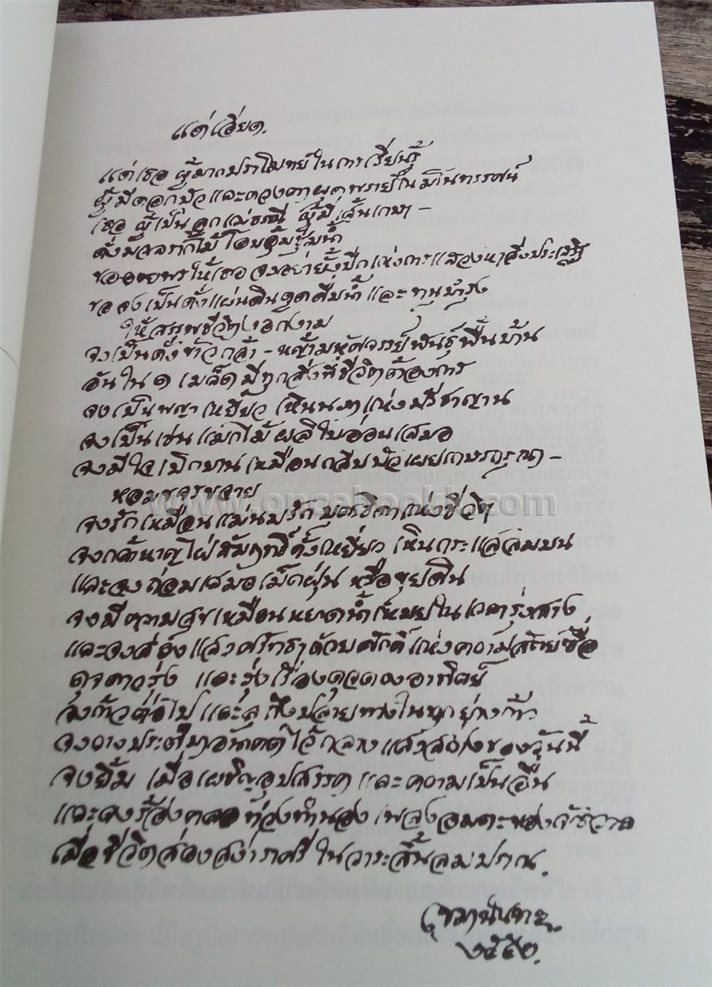 แด่เธอ ผู้มากปราโมทย์ในการเรียนรู้
ผู้มีดอกบัวและดวงตาผุดพรายใน
เธอ ผู้เป็นลูกแม่ธรณี ผู้มีเส้นเกษา –
ดั่งมวลรากไม้โอบอุ้มชุ่มน้ำ
ขออวยพรให้เธอ จงอย่ายั้งปีกแห่งการแสวงหาสิ่งประเสริฐ
ขอจงเป็นดั่งแผ่นดินดูดดื่มน้ำ และทนุบำรุง
ให้สรรพชีวิตงอกงาม
จงเป็นดั่งข้าวกล้า – หญ้ามหัศจรรย์พันธุ์พื้นบ้าน
อันใน ๑ เมล็ดมีทุกสิ่งที่ชีวิตต้องการ
จงเป็นพญาเหยี่ยว เหินนภาแห่งปรีชาญาน
จงเป็นเช่นแมกไม้ ผลิใบอ่อนเสมอ
จงมีใจเบิกบานเหมือนกลีบบัวเผยเกษรกรุณา –
หอมขจรขจาย
www.oncebook.com
จงรักเหมือนแม่นมรัก บุตรธิดาแห่งชีวิต
จงกล้าหาญใฝ่สัมฤทธิ์ดั่งเหยี่ยว เหินกระแสลมบน
และจงถ่อมเสมอเม็ดฝุ่น หรือขุยดิน
จงมีความสุขเหมือนหยาดน้ำเหมยในเวลารุ่งสาง
และจงส่องแสงศรัทธาด้วยศักดิ์แห่งความสัตย์ซื่อ
ดุจดาวรุ่ง และรุ่งเรืองดุจดวงอาทิตย์
จงก้าวต่อไป และลุถึงปลายทางในทุกย่างก้าว
จงวางประตูอนาคตไว้กลางแสงสว่างของวันนี้
จงยิ้ม เมื่อเผชิญอุปสรรค และความเป็นอื่น
และจงร้องคลอท่วงทำนอง เพลงอมตะของจักรวาล
เมื่อชีวิตล่องสง่าราศรีในวาระสิ้นลมปราณ.
เขมานันทะ.
๒๕๕๐.